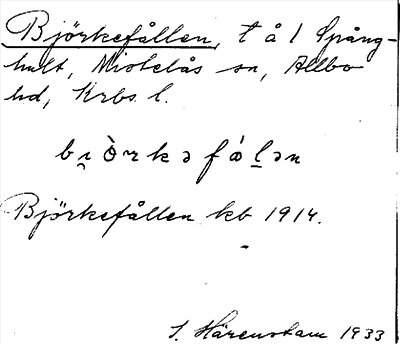 Björkefållen, t å l Spång-
hult, Mistelås sn, Allbo
hd, Krbs. l.
bi̯ òrkəfål̠ən
Björkefållen kb 1914.
S. Härenstam 1933